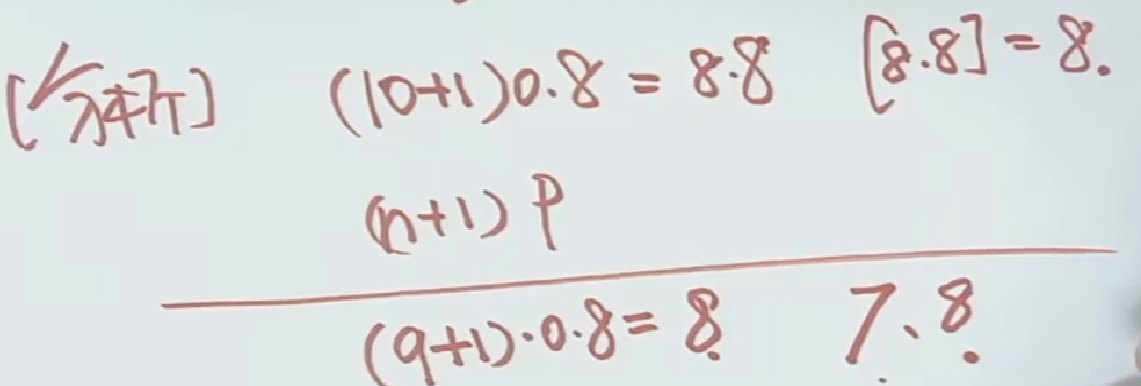 [分析] (10+1)0.8=8.8 [8.8]=8.
(n+1)P
(9+1)·0.8=8 7、8